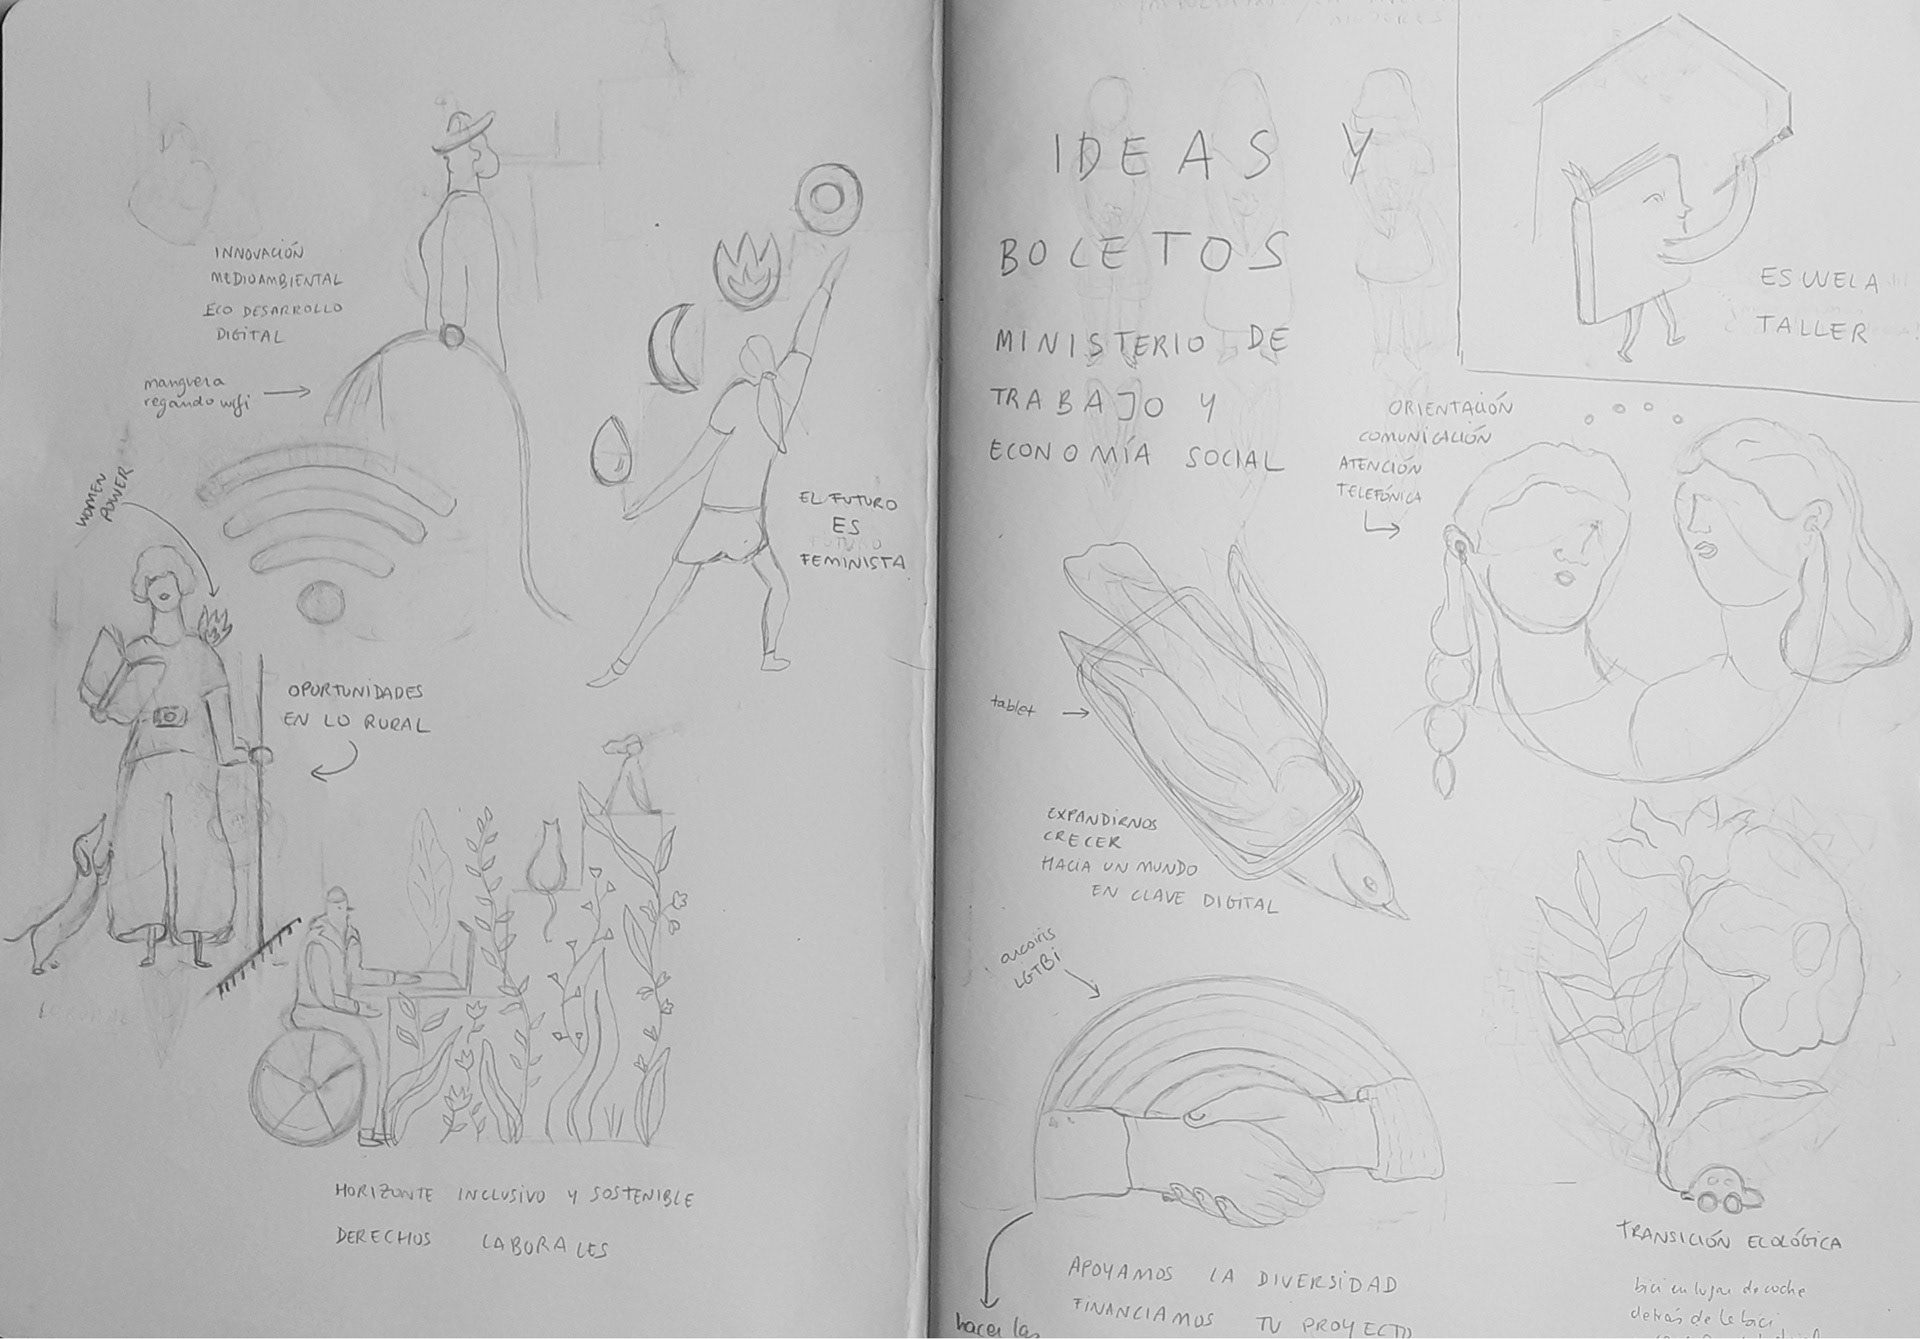 INNOVACIÓN
MEDIOAMBIENTAL
ECO DESARROLLO
DIGITAL
manguera
regando wifi
WOMEN
POWER
EL FUTURO
ES
FEMINISTA
OPORTUNIDADES
EN LO RURAL
HORIZONTE INCLUSIVO Y SOSTENIBLE
DERECHOS LABORALES
IDEAS Y
BOCETOS
MINISTERIO DE
TRABAJO Y
ECONOMÍA SOCIAL
ESCUELA
TALLER
ORIENTACIÓN
COMUNICACIÓN
ATENCIÓN
TELEFÓNICA
tablet
EXPANDIRNOS
CRECER
HACIA UN MUNDO
EN CLAVE DIGITAL
arcoiris
LGTBi
APOYAMOS LA DIVERSIDAD
FINANCIAMOS TU PROYECTO
hacer las
TRANSICIÓN ECOLÓGICA
bici en lugar de coche
detrás de la bici